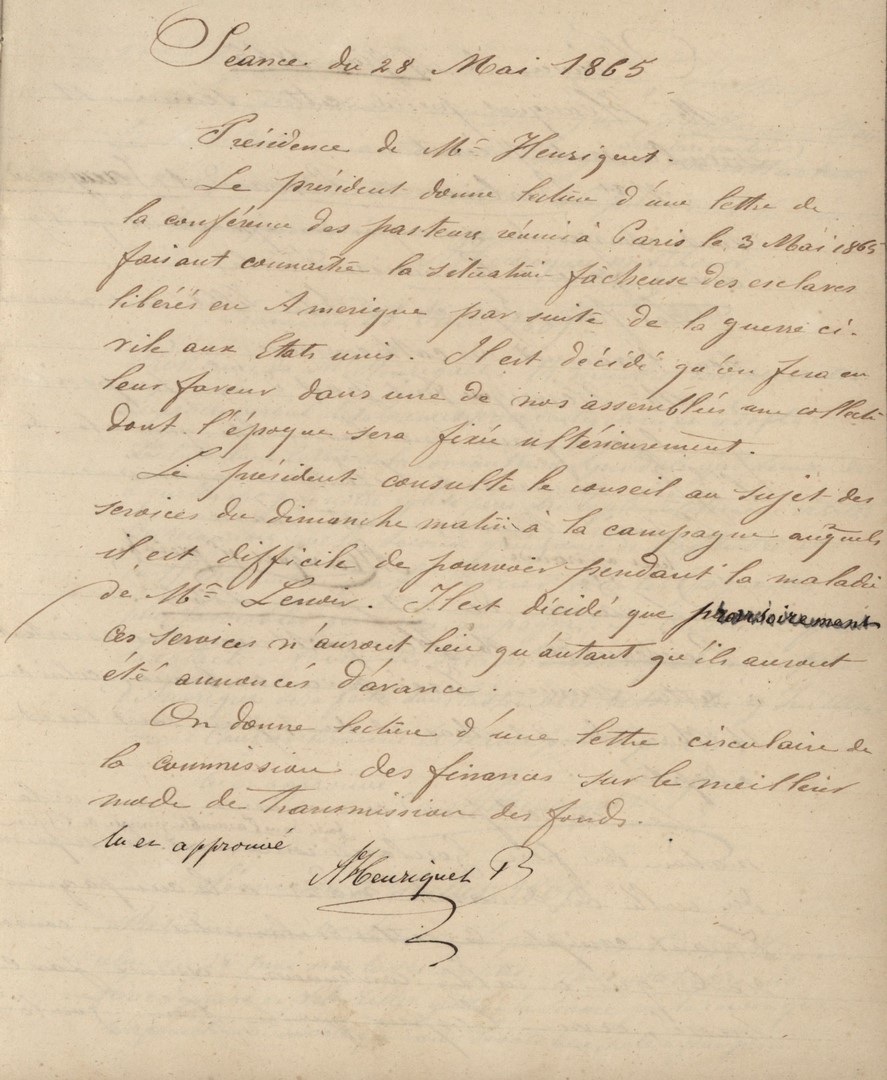 Séance du 28 Mai 1865
Présidence de Mr Henriquet.
Le président donne lecture d'une lettre de
la conférence des pasteurs réunis à Paris le 3 Mai 1865
faisant connaitre la situation fâcheuse des esclaves
libérés en Amerique par suite de la guerre ci-
vile aux Etats unis. Il est décidé qu'on fera en
leur faveur dans une de nos assemblées une collecte
dont l'époque sera fixée ultérieurement.
Le président consulte le conseil au sujet des
services du dimanche matin à la campagne auxquels
il est difficile de pourvoir pendant la maladie
de Mr Lenoir. Il est décidé que provisoirement
ces services n'auront lieu qu'autant qu'ils auront
été annoncés d'avance.
On donne lecture d'une lettre circulaire de
la commission des finances sur le meilleur
mode de transmission des fonds.
lu et approuvé
Henriquet P